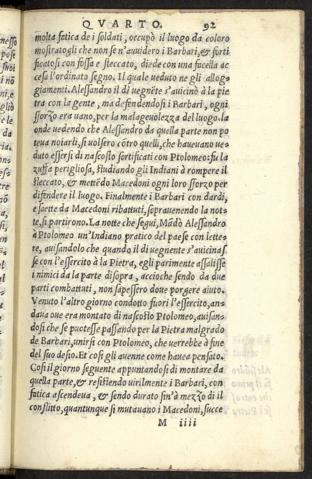 QVARTO. 92
molta fatica de i soldati, occupò il luogo da coloro
mostratogli che non se n'auuidero i Barbari, & forti
ficatosi con fossa e steccato, diede con una facella ac
cesa l'ordinato segno. Il quale ueduto ne gli allog-
giamenti. Alessandro il dì uegnẽte s'auicinò à la pie
tra con la gente, ma defendendosi i Barbari, ogni
sforzo era uano, per la malageuolezza del luogo. la
onde uedendo che Alessandro da quella parte non po
teua noiarli, si uolsero cõtro quelli, che haueuano ue-
duto essersi di nascosto fortificati con Ptolomeo: fu la
zuffa perigliosa, studiando gli Indiani à rompere il
steccato, & mettẽdo Macedoni ogni loro sforzo per
difendere il luogo. Finalmente i Barbari con dardi,
e saette da Macedoni ributtati, soprauenendo la not-
te, si partirono. La notte che seguì, Mãdò Alessandro
à Ptolomeo un'Indiano pratico del paese con lette-
re, auisandolo che quando il dì uegnente s'auicinas
se con l'essercito à la Pietra, egli parimente assalisse
i nimici da la parte disopra, acciochè sendo da due
parti combattuti, non sapessero doue porgere aiuto.
Venuto l'altro giorno condotto fuori l'essercito, an-
daua oue era montato di nascosto Ptolomeo, auisan-
dosi che se puotesse passando per la Pietra malgrado
de Barbari, unirsi con Ptolomeo, che uerrebbe à fine
del suo desio. Et così gli auenne come hauea pensato.
Così il giorno seguente appuntandosi di montare da
quella parte, & resistendo uirilmente i Barbari, con
fatica ascendeua, & sendo durato sin'à mezzo dì il
conflitto, quantunque si mutauano i Macedoni, succe
M iiii